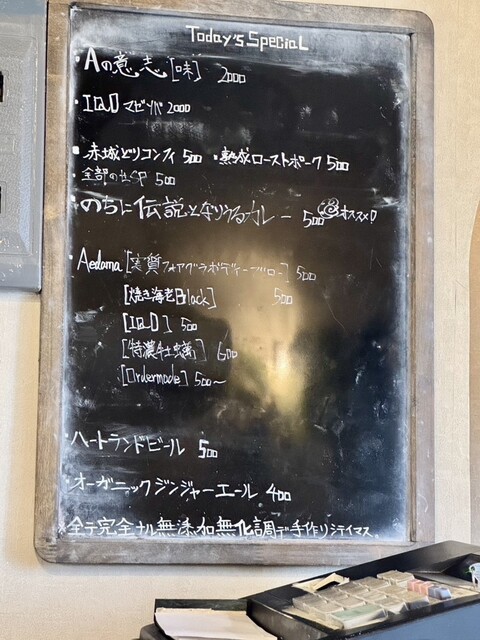 Today's Special
・Aの意志[味] 2000
・IQ0 マゼソバ 2000
・赤城どりコンフィ 500 ・熟成ローストポーク 500
・全部のせSP 500
・のちに伝説となりうるカレー 500 オススメ!)
・Aedama [実質フォアグラボディーブロー] 500
[焼き海老Black] 500
[IQ0] 500
[特濃牡蠣] 600
[Ordermade] 500〜
・ハートランドビール 500
・オーガニックジンジャーエール 400
※全テ完全ナル無添加無化調デ手作リシテイマス。